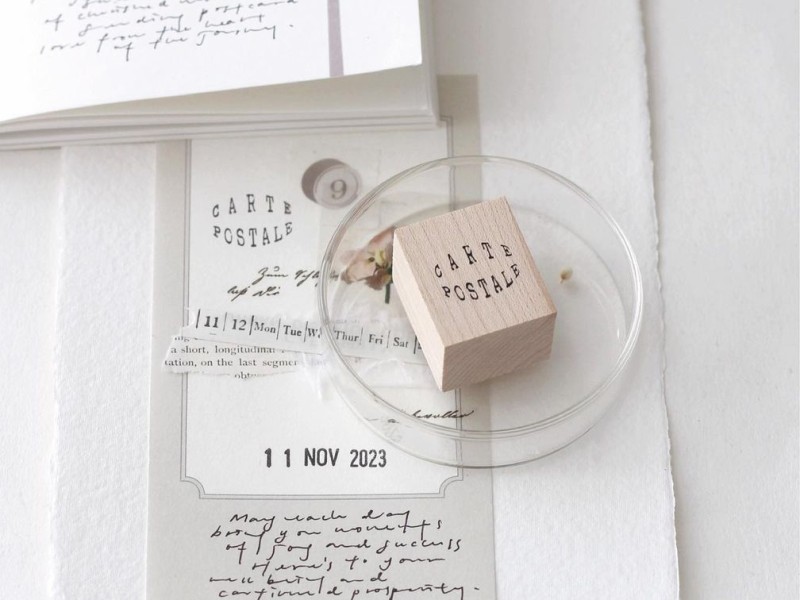 of cherished
sending postcard
love from the heart
of the journey.
9
CARTE
POSTALE
CARTE
POSTALE
Zum
11 12 Mon Tue W. Thur Fri Sat
a short, longitudinal
tation, on the last segmen
11 NOV 2023
May each day
bring you moments
of joy and success
Here's to your
well being and
continued prosperity.